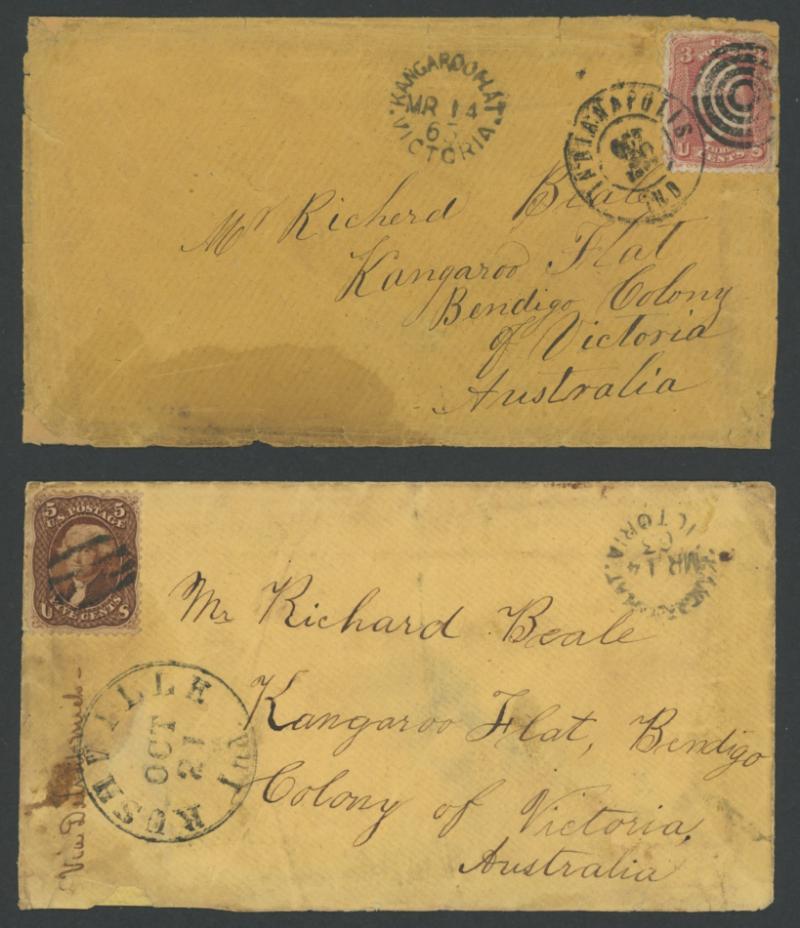 KANGAROO FLAT
MR 14
65
VICTORIA
INDIANAPOLIS
OCT
IND
3
U.S.
THREE
CENTS
U S
Mr Richerd Beale
Kangaroo Flat
Bendigo Colony
of Victoria
Australia
5 5
U.S. POSTAGE
U S
FIVE CENTS
VICTORIA
MR 14
KANGAROO FLAT
Mr Richard Beale
Kangaroo Flat, Bendigo
Colony of Victoria,
Australia
RUSHVILLE Ind
OCT
21
Via